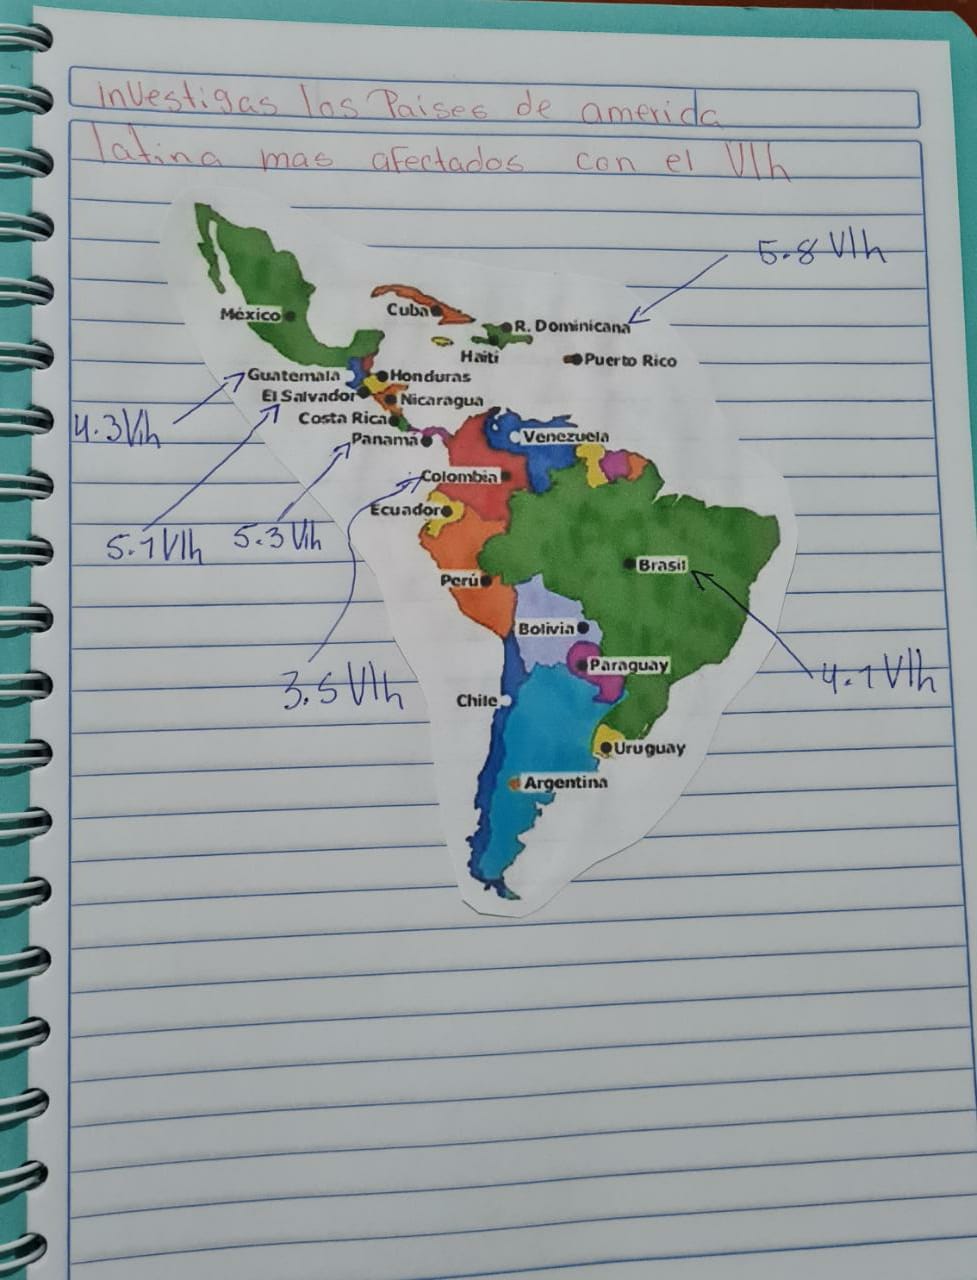 investigas los Paises de america
latina mas afectados con el VIh
5.8 VIh
México
Cuba
R. Dominicana
Haiti
Puerto Rico
Guatemala
Honduras
El Salvador
Nicaragua
4.3 VIh
Costa Rica
Panamá
Venezuela
Colombia
Ecuador
5.1 VIh
5.3 VIh
Brasil
Perú
Bolivia
Paraguay
4.1 VIh
3.5 VIh
Chile
Uruguay
Argentina